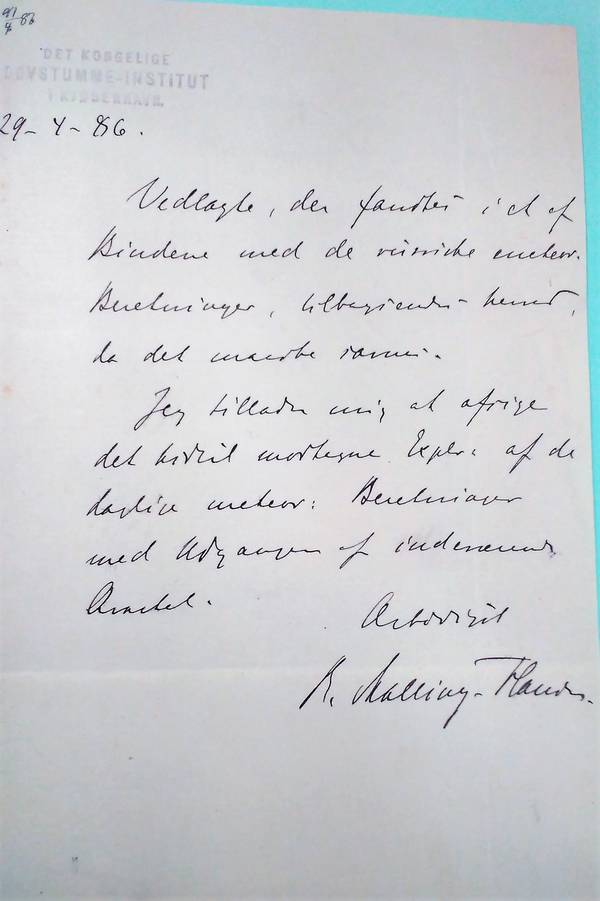 DET KONGELIGE
DØVSTUMME-INSTITUT
I KJØBENHAVN.
29-4-86.
Vedlagte, der fandtes i et af
Bindene med de russiske meteor.
Beretninger, tilbagesendes herved,
da det maaske savnes.
Jeg tillader mig at afsige
det hidtil modtagne Expl. af de
daglige meteor: Beretninger
med Udgangen af indeværende
Qvartal.
Ærbødigst
R. Malling-Hansen.